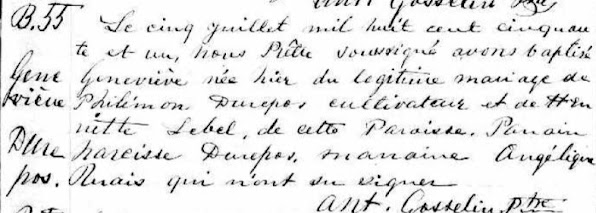 B.55 Le cinq juillet mil huit cent cinquan
te et un, nous Prêtre soussigné avons baptisé
Gene Geneviève née hier du légitime mariage de
viève Philémon Durepos cultivateur et de Hen
riette Lebel, de cette Paroisse. Parrain
Dure Narcisse Durepos, marraine Angélique
pos. Ruais qui n'ont su signer
Ant. Gosselin Ptre